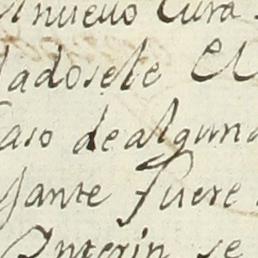 nuevo Cura
ladosele El
Caso de alguna
gante Fuere
Ynterin se